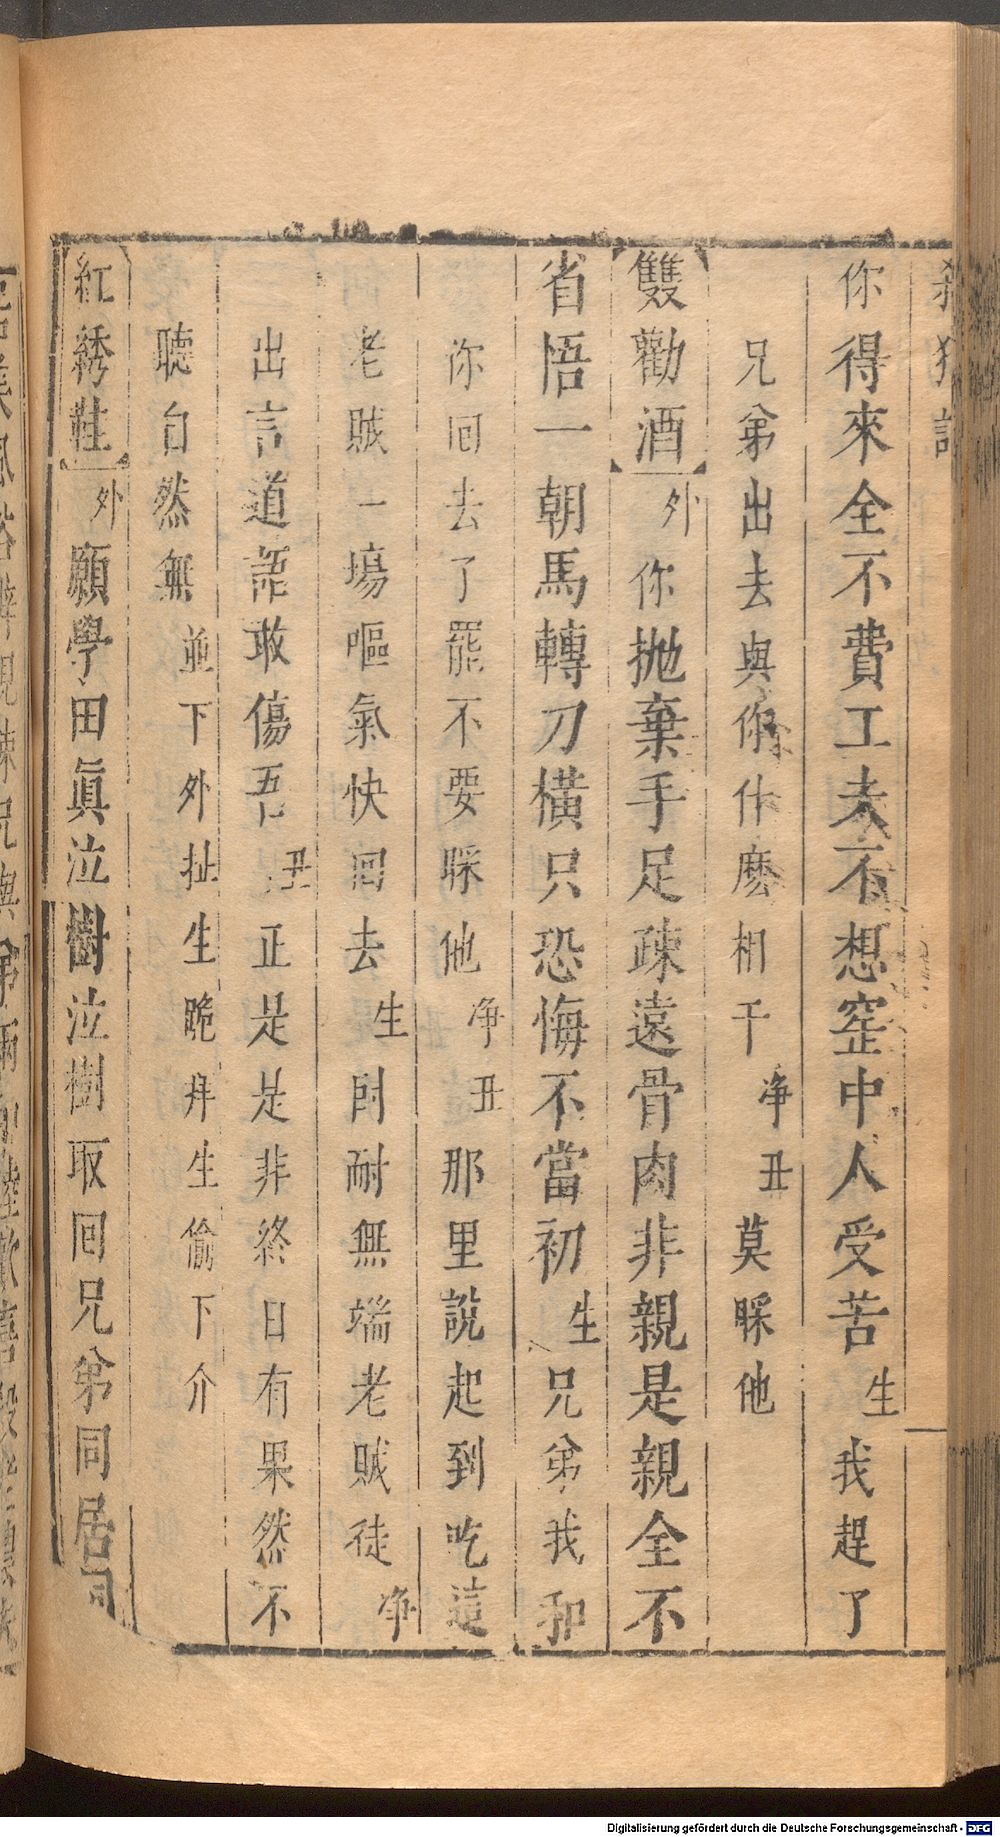 殺狗記
你得來全不費工夫不想窑中人受苦生我趕了
兄弟出去與你什麽相干净丑莫睬他
雙勸酒外你抛棄手足疎遠骨肉非親是親全不
省悟一朝馬轉刀橫只恐悔不當初生兄弟我和
你回去了罷不要睬他净丑那里說起到吃這
老賊一塲嘔氣快回去生尀耐無端老賊徒净
出言道語敢傷吾丑正是是非終日有果然不
聽自然無並下外扯生跪拜生偷下介
紅綉鞋外願學田眞泣樹泣樹取回兄弟同居同
Digitalisierung gefördert durch die Deutsche Forschungsgemeinschaft - DFG